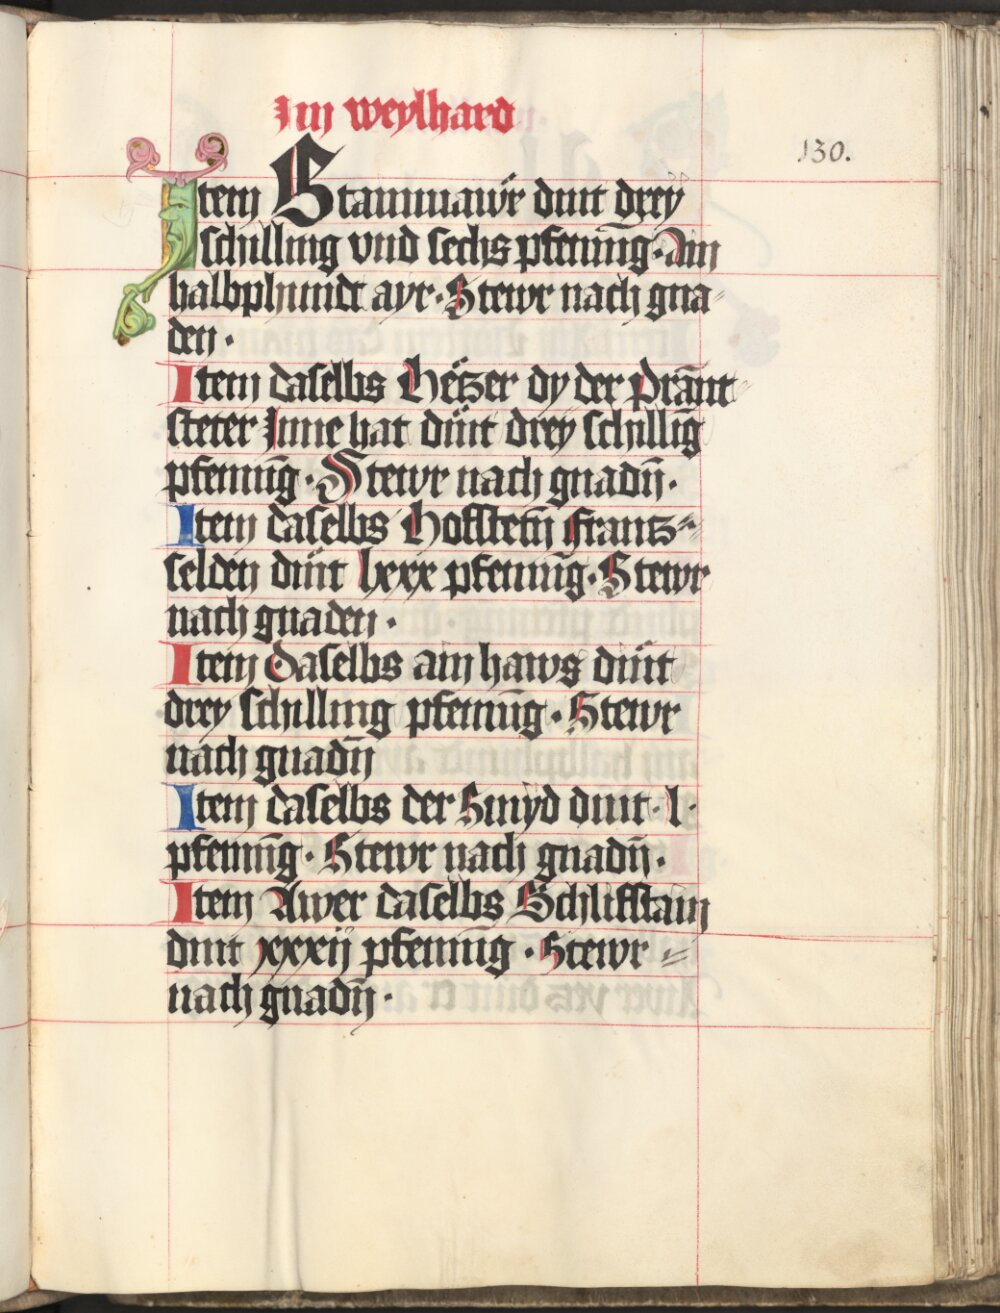 Im weylhard
130.
Item Stammawr dint drey
schilling vnd sechs pfenning · Ain
halbphundt ayr · Stewr nach gna
den ·
Item daselbs Hetzer dy der Prāmt
steter Inne hat dint drey schillig
pfennīg · Stewr nach gnadn̄ ·
Item daselbs Hofstetn̄ Frantz
selden dint lxxx pfennīg · Stewr
nach gnaden ·
Item daselbs ain haws dint
drey schilling pfennīg · Stewr
nach gnadn̄
Item daselbs der Smyd dint · l ·
pfennīg · Stewr nach gnadn̄ ·
Item Awer daselbs Schlifstain
dint xxxij pfennīg · Stewr
nach gnadn̄ ·